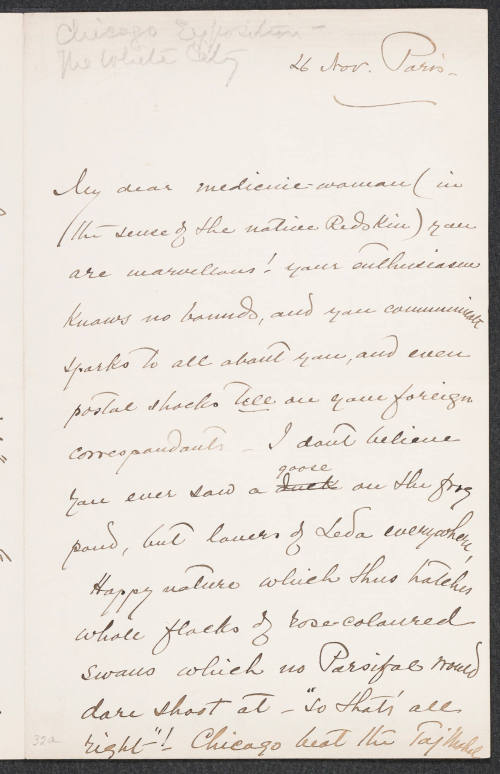 Chicago Exposition –
The White City
26 Nov. Paris –
My dear medicine-woman (in
(the sense of the native Redskin) you
are marvellous! your enthusiasm
knows no bounds, and you communicate
sparks to all about you, and even
postal shocks tell on your foreign
correspondants – I don't believe
you ever saw a goose duck on the frog
pond, but lovers of Leda everywhere,
Happy nature which thus hatches
whole flocks of rose-coloured
swans which no Parsifal would
dare shoot at – "So that's all
right"! – Chicago beat the Taj Mahal
32a